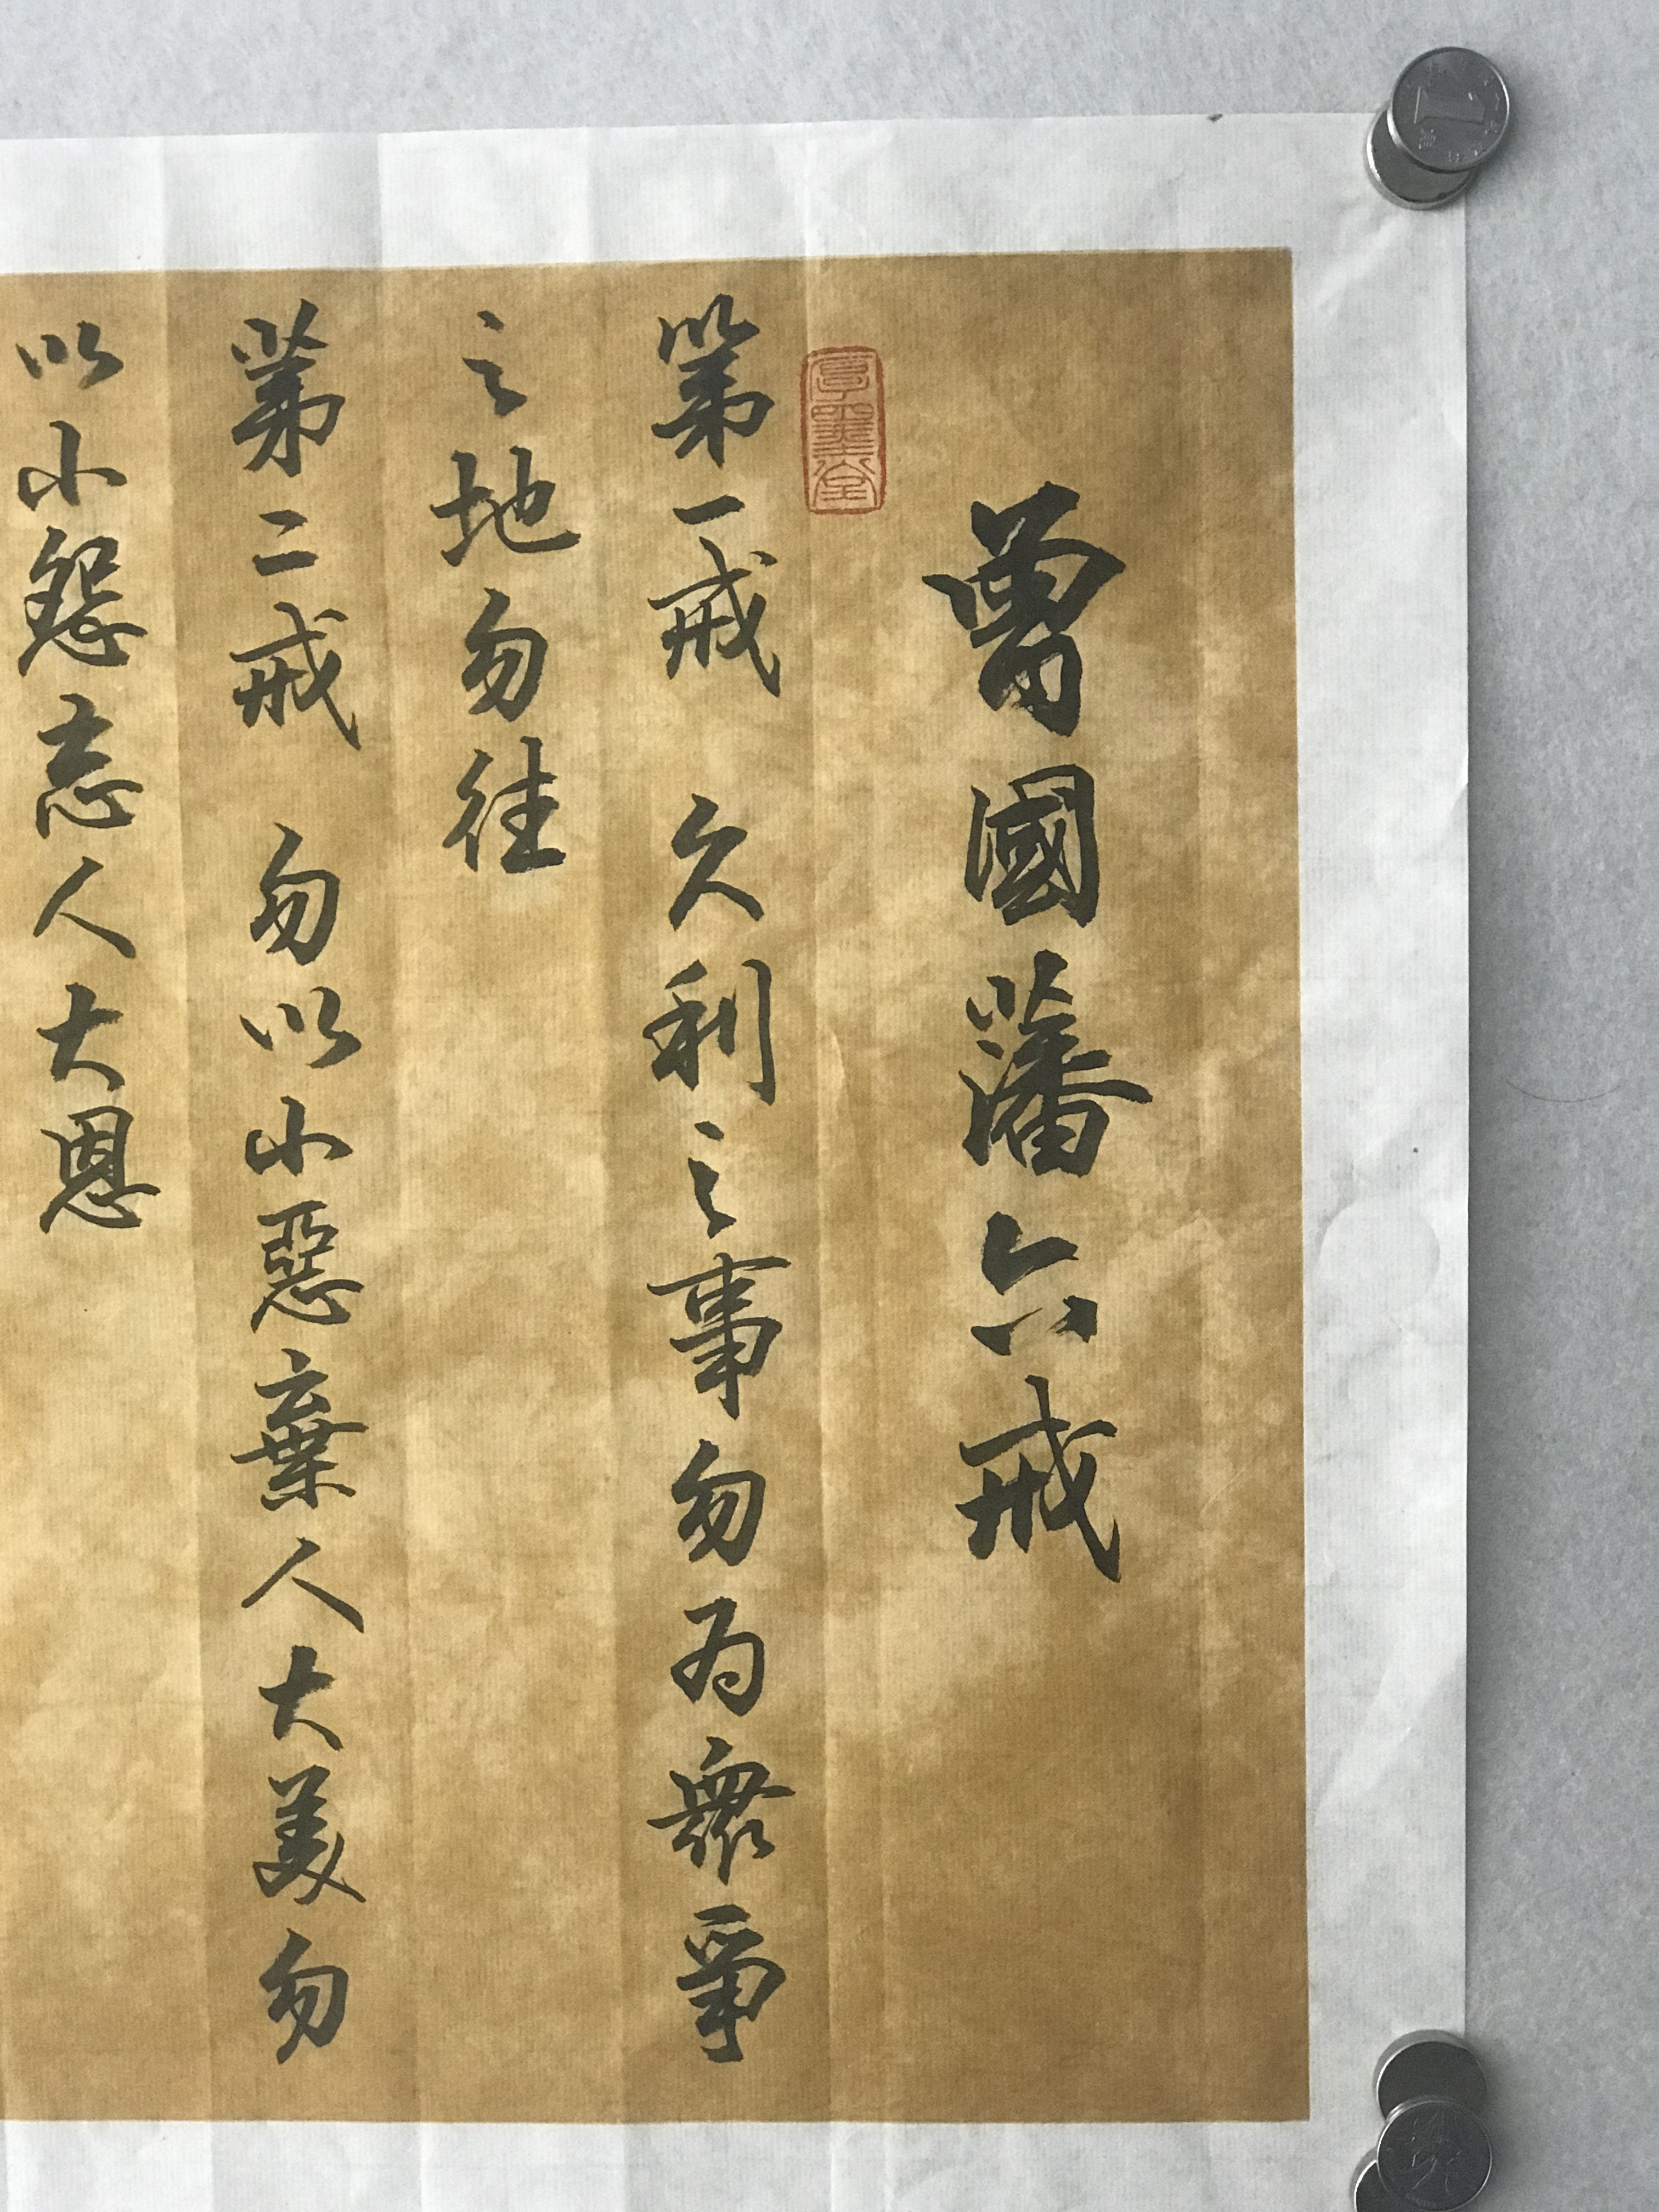 曾國藩六戒
第一戒 久利之事勿為衆爭
之地勿往
第二戒 勿以小惡棄人大美勿
以小怨忘人大恩